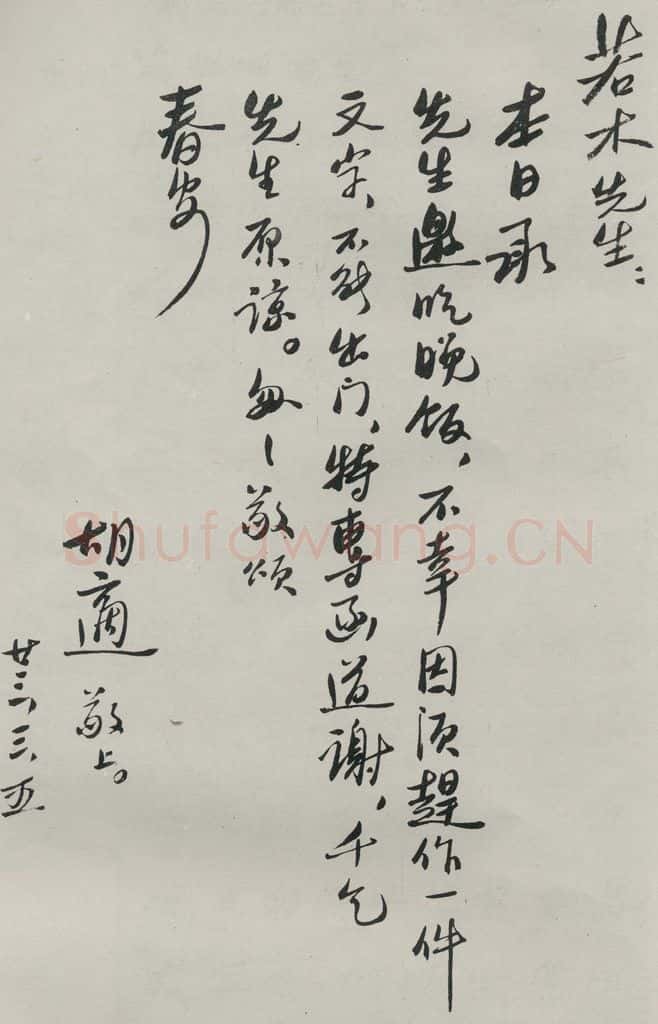 若木先生：
本日承
先生邀吃晚饭，不幸因须趕作一件
文字，不能出门，特專函道謝，千乞
先生原諒。匆匆敬颂
春安
胡適敬上。
廿三，三，五
Shufawang.CN